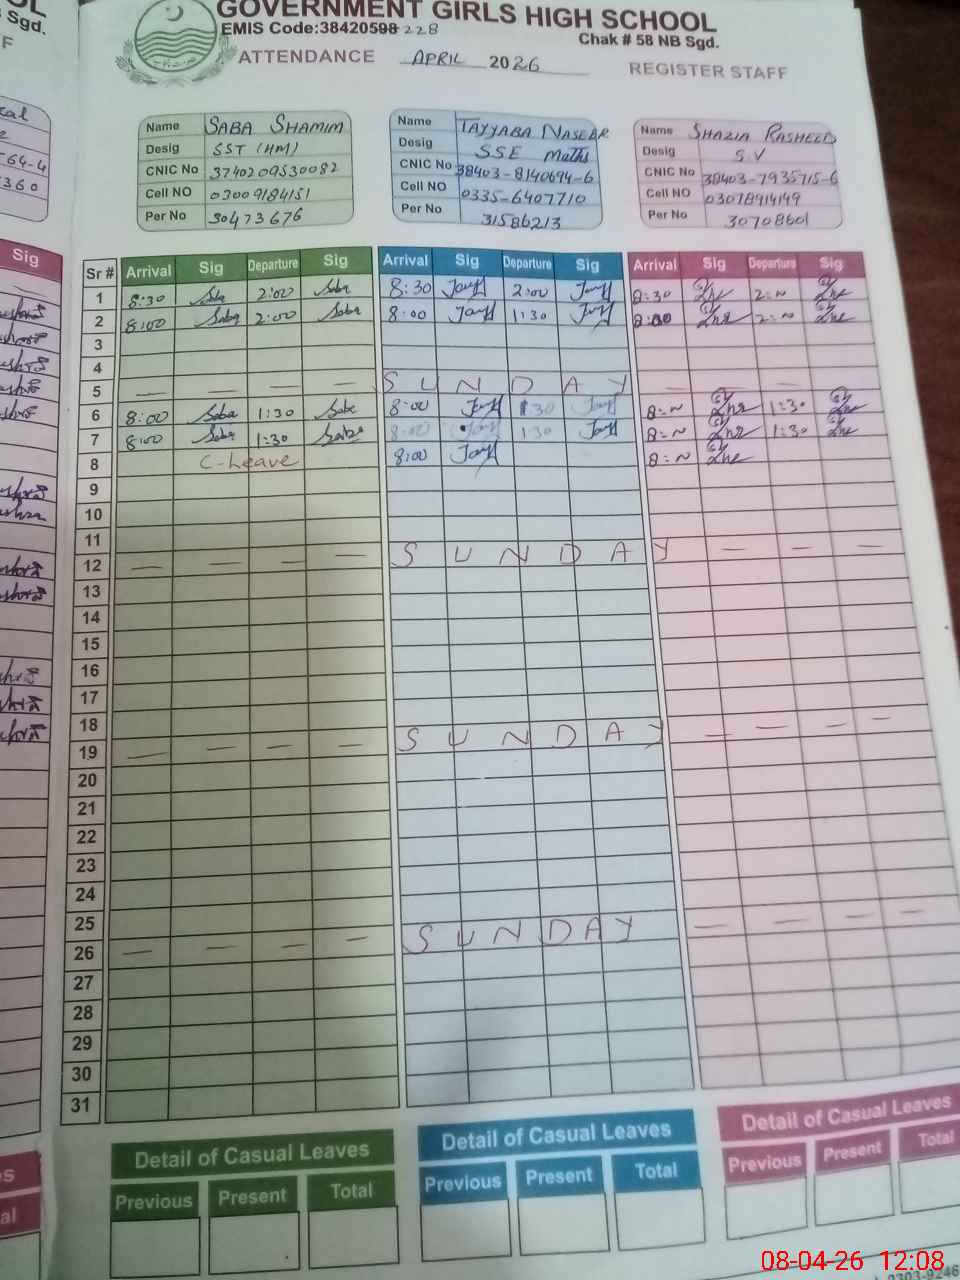 GOVERNMENT GIRLS HIGH SCHOOL
EMIS Code:38420598 228
Chak # 58 NB Sgd.
Sgd.
F
ATTENDANCE APRIL 2026 REGISTER STAFF
Name SABA SHAMIM
Desig SST (HM)
CNIC No 3740209530082
Cell NO 03009184151
Per No 30473676
Name TAYYABA NASEER
Desig SSE Maths
CNIC No 38403-8140694-6
Cell NO 0335-6407710
Per No 31586213
Name SHAZIA RASHEED
Desig S.V
CNIC No 38403-7935715-6
Cell NO 03078914149
Per No 30708601
64-4
360
Sig
Sr # Arrival Sig Departure Sig Arrival Sig Departure Sig Arrival Sig Departure Sig
1 8:30 Saba 2:00 Saba 8:30 2:00 8:30 2:~
2 8:00 Saba 2:00 Saba 8:00 1:30 8:00 2:~
3
4
5 — — — — SUNDAY — — — —
6 8:00 Saba 1:30 Saba 8:00 1:30 8:~ 1:30
7 8:00 Saba 1:30 Saba 8:00 1:30 8:~ 1:30
8 C-Leave 8:00 8:~
9
10
11
12 — — — — SUNDAY — — —
13
14
15
16
17
18
19 — — — — SUNDAY — — — —
20
21
22
23
24
25
26 — — — — SUNDAY — — — —
27
28
29
30
31
Detail of Casual Leaves
Previous Present Total
Detail of Casual Leaves
Previous Present Total
Detail of Casual Leaves
Previous Present Total
08-04-26 12:08